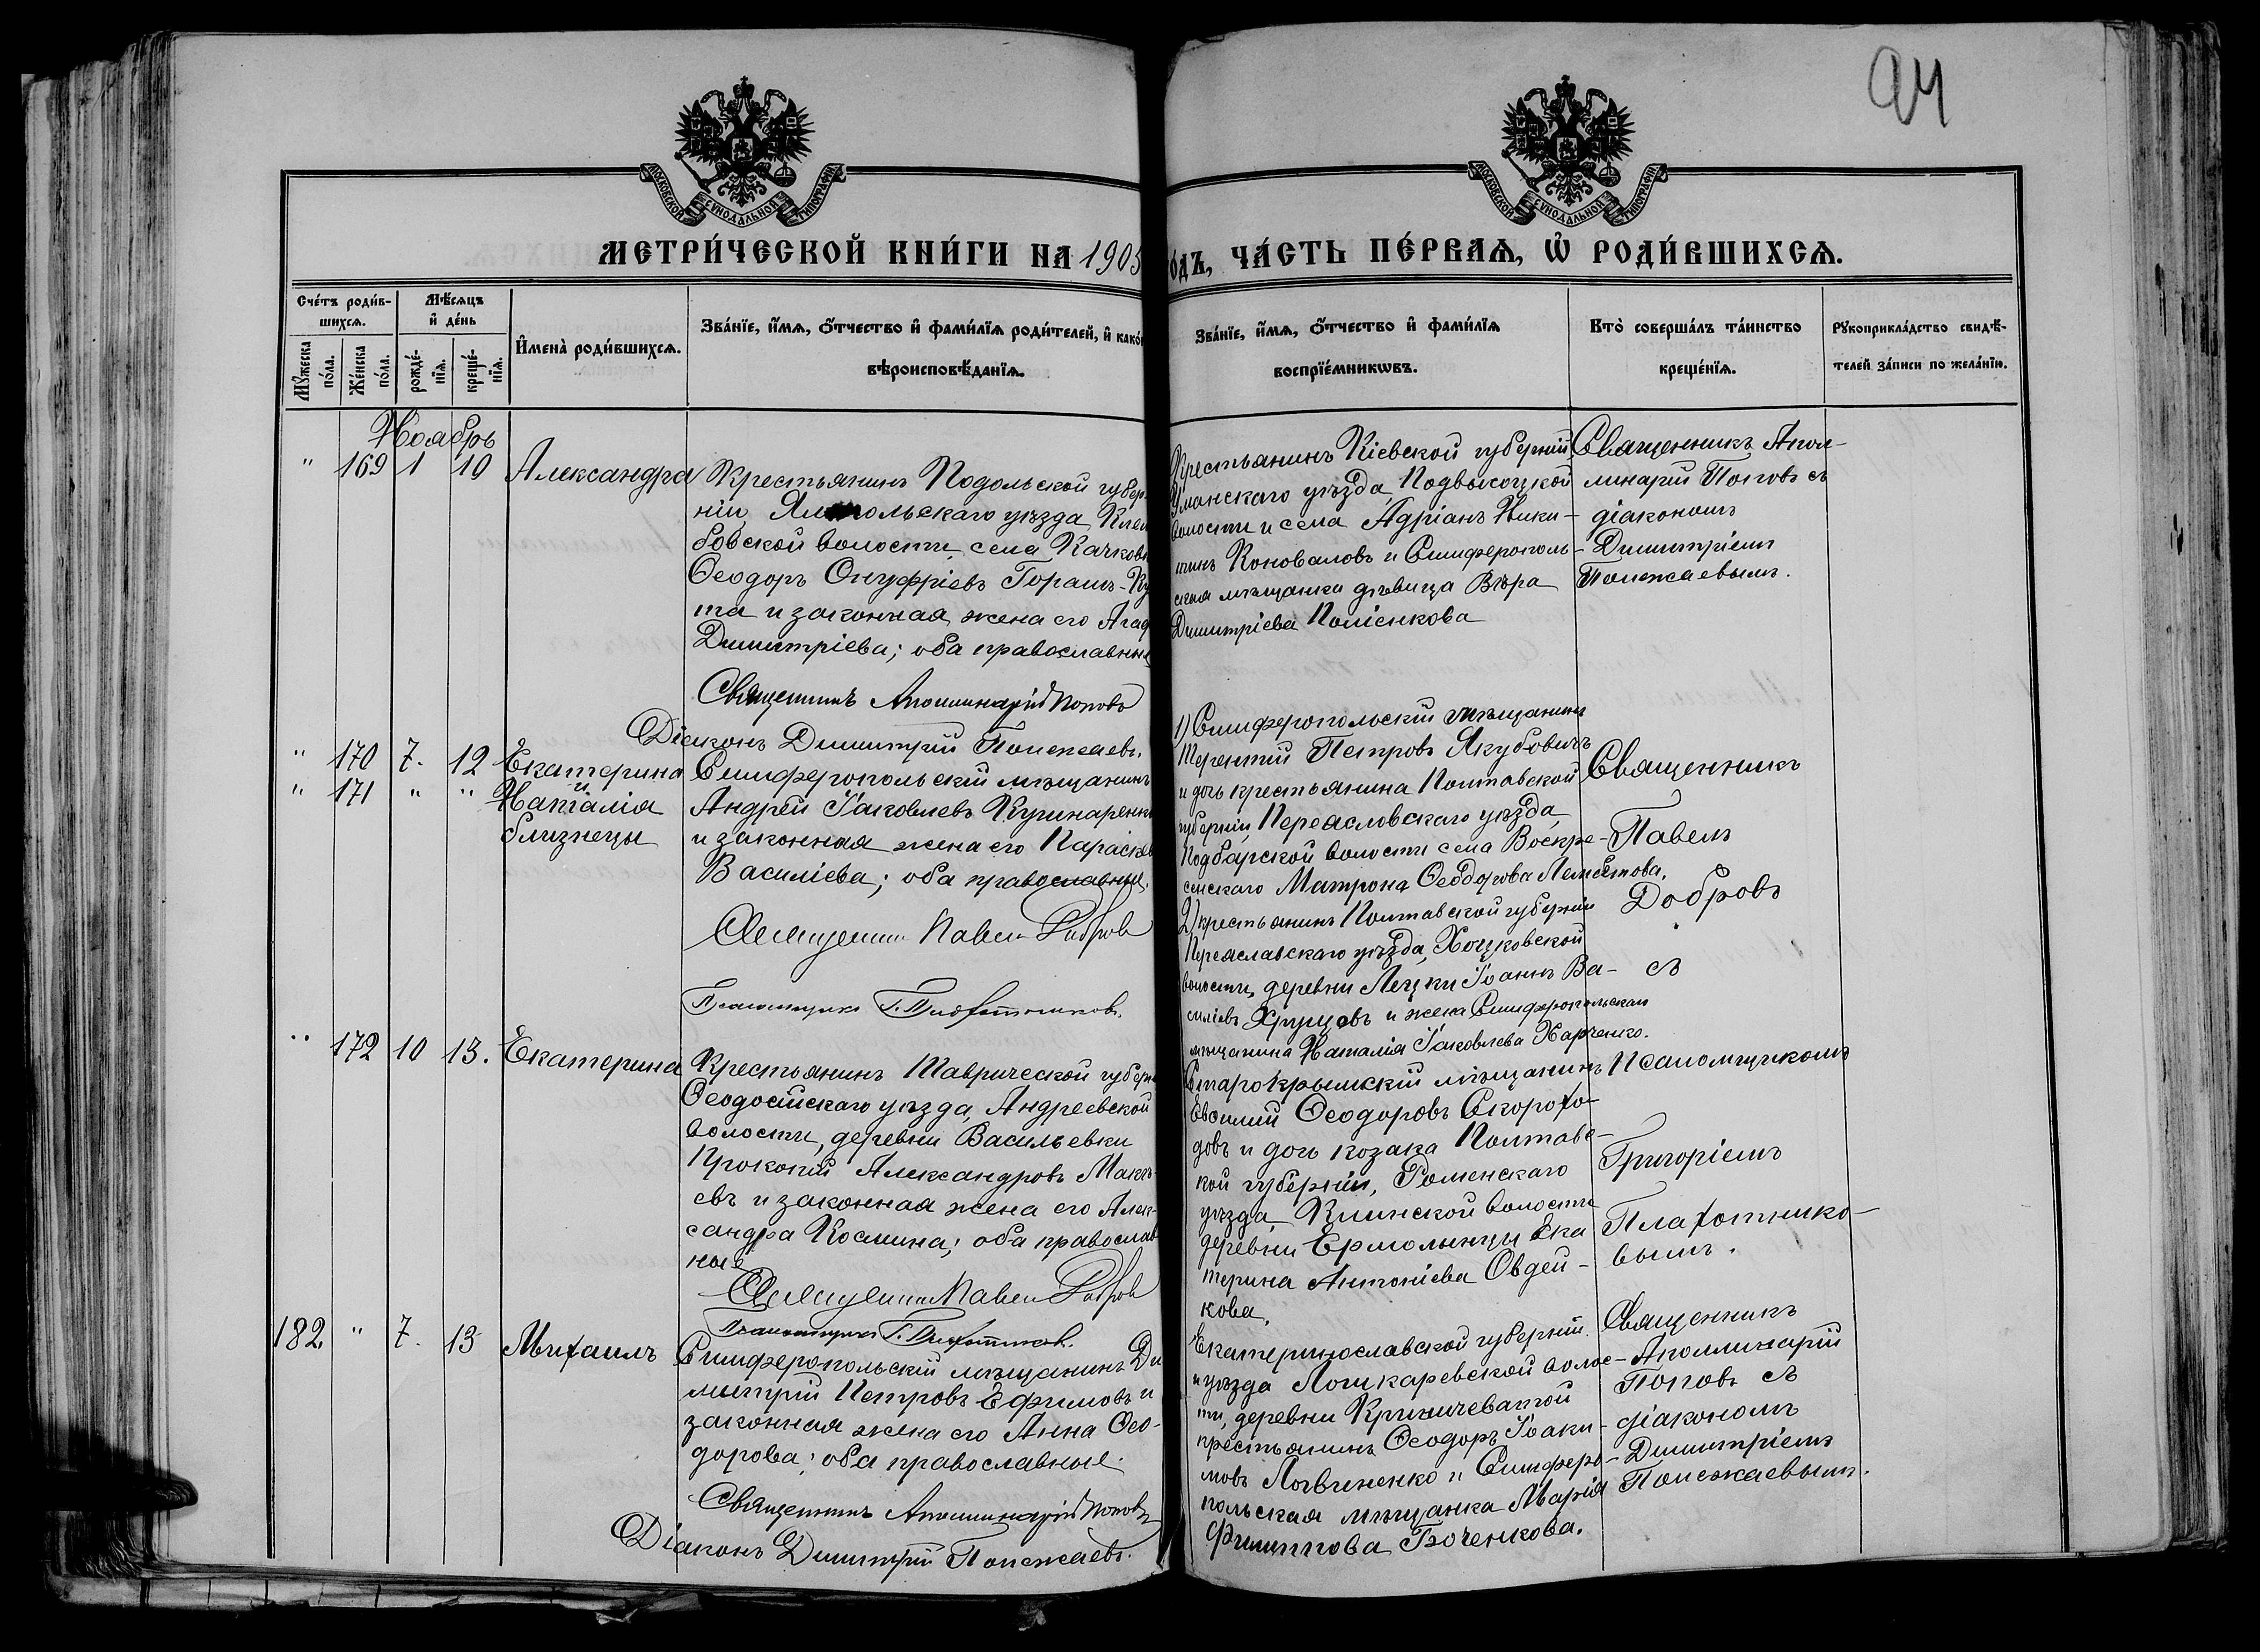 94
МОСКОВСКОЙ СѴНОДАЛЬНОЙ ТИПОГРАФІИ
МОСКОВСКОЙ СѴНОДАЛЬНОЙ ТИПОГРАФІИ
МЕТРИ́ЧЕСКОЙ КНИ́ГИ НА 1905
о́дъ, ЧА́СТЬ ПЕ́РВАѦ, Ѡ҆ РОДИ́ВШИХСѦ.
Сче́тъ роди́в-
шихсѧ.
Мꙋ́жеска
по́ла.
Же́нска
по́ла.
Мѣ́сѧцъ
и҆ де́нь
рожде́-
нїѧ.
креще́-
нїѧ.
И҆мена̀ роди́вшихсѧ.
Зва́нїе, и҆́мѧ, ѻ҆́тчество и҆ фами́лїѧ роди́телей, и҆ како́
вѣроисповѣ́данїѧ.
Зва́нїе, и҆́мѧ, ѻ҆́тчество и҆ фами́лїѧ
воспрїе́мникѡвъ.
Кто̀ соверша́лъ та́инство
креще́нїѧ.
Рꙋкоприкла́дство свидѣ́-
телей за́писи по жела́нїю.
Ноябрь
" 169 1 10 Александра
Крестьянинъ Подольской губер
ніи, Ямпольскаго уѣзда, Клем
бовской волости, села Качковк
Ѳеодоръ Онуфріевъ Горашъ-Ку
та и законная жена его Агаф
Димитріева; оба православные
Священникъ Аполлинарій Поповъ
Діаконъ Димитрій Полежаевъ.
Крестьянинъ Кіевской губерніи
Уманскаго уѣзда, Подвысоцкой
волости и села Адріанъ Ники-
тинъ Коноваловъ и Симферополь-
ская мѣщанка дѣвица Вѣра
Димитріева Полієнкова
Священникъ Апол-
линарій Поповъ съ
діакономъ
Димитріемъ
Полежаевымъ.
" 170 7. 12 Екатерина
" 171 " " и
Наталія
близнецы
Симферопольскій мѣщанинъ
Андрей Іаковлевъ Кушнаренк
и законная жена его Параскев
Василіева; оба православные.
Священникъ Павелъ Добров
Псаломщикъ Г. Плахотниковъ.
1) Симферопольскій мѣщанинъ
Терентій Петровъ Якубовичъ
и дочь крестьянина Полтавской
губерніи, Переясловскаго уѣзда,
волости села Воскре-
сенскаго Матрона Ѳеодорова
2) крестьянинъ Полтавской губерніи
Переяславскаго уѣзда, Хоцковской
волости, деревни Лецки Іоаннъ Ва-
силіевъ Хрущовъ и жена Симферопольскаго
мѣщанина Наталія Іаковлева Харченко.
Священникъ
Павелъ
Добровъ
съ
Псаломщикомъ
Григоріемъ
Плахотнико-
вымъ.
" 172 10 13. Екатерина
Крестьянинъ Таврической губерн
Ѳеодосійскаго уѣзда, Андреевской
волости, деревни Васильевки
Прокопій Александровъ Макѣ-
евъ и законная жена его Алек-
сандра Космина; оба православ
ные
Священникъ Павелъ Добров
Псаломщикъ Г. Плахотниковъ.
Старокрымскій мѣщанинъ
Ѳеодоровъ Скорохо-
довъ и дочь козака Полтавс-
кой губерніи, Роменскаго
уѣзда, волости
деревни Ермолынцы Ека
терина Антоніева Овдей-
кова.
182 " 7. 13 Михаилъ
Симферопольскій мѣщанинъ Ди
митрій Петровъ Ефимовъ и
законная жена его Анна Ѳео-
дорова; оба православные.
Священникъ Аполлинарій Поповъ
Діаконъ Димитрій Полежаевъ.
Екатеринославской губерніи
и уѣзда Лошкаревской волос-
ти, деревни Криничеватой
крестьянинъ Ѳеодоръ Іоаки-
мовъ Логвиненко и Симферо-
польская мѣщанка Марія
Филиппова Боченкова.
Священникъ
Аполлинарій
Поповъ съ
діакономъ
Димитріемъ
Полежаевымъ.